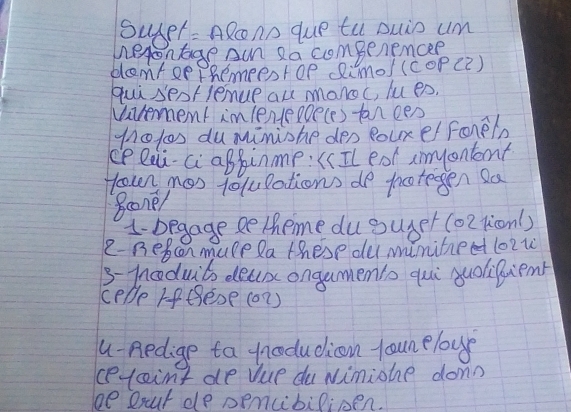 Sujet = Alors que tu suis un
reportage sur la comference
dont le thème est le climat (COP22)
qui s'est tenue au maroc, tu es
vivement interpellé(e) par ces
propos du Ministre des Eaux et Forêts
celui-ci affirme : << Il est important
pour nos populations de protéger la
forêt
1- Degage le thème du sujet (02
2- Reformule la thèse du ministre
3- produits deux arguments qui justifient
cette thèse (02)
4- Redige ta production pour
ce point de vue du Ministre dans
le but de sencibiliser.